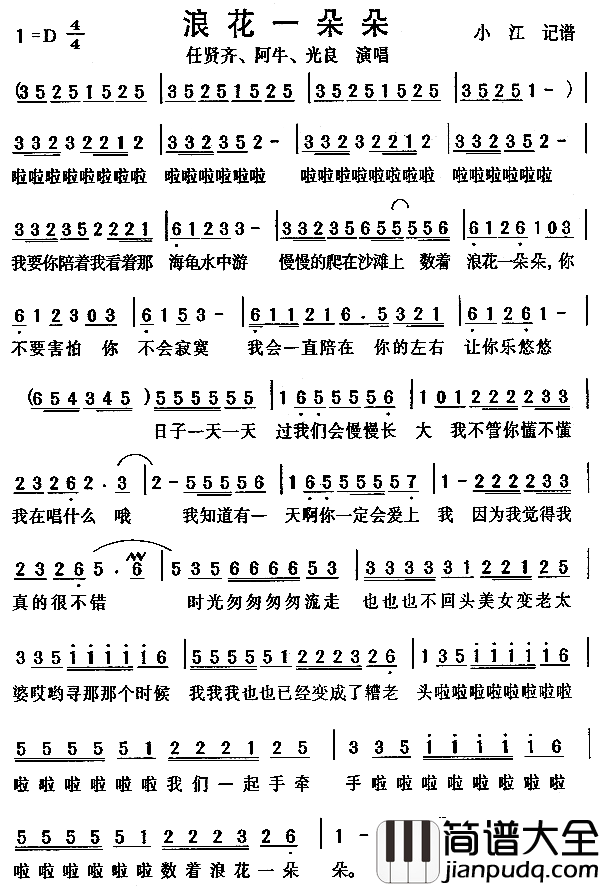 浪花一朵朵
1=D 4/4
任贤齐、阿牛、光良 演唱
小江 记谱
(35251525 | 35251525 | 35251525 | 35251-)
33232212 | 3323352- | 33232212 | 3323352-
啦啦啦啦啦啦啦啦 啦啦啦啦啦啦 啦啦啦啦啦啦啦啦 啦啦啦啦啦啦
332352221 | 61233- | 3323565555 56 | 6126103
我要你陪着我看着那 海龟水中游 慢慢的爬在沙滩上 数着 浪花一朵朵,你
612303 | 6153- | 61111216.5321 | 6261-
不要害怕 你 不会寂寞 我会一直陪在 你的左右 让你乐悠悠
(6543345) | 555555 | 16555556 | 1012222233
日子一天一天 过我们会慢慢长 大 我不管你懂不懂
23262.3 | 2-555556 | 1655555567 | 1-1222233
我在唱什么 哦 我知道有一 天啊你一定会爱上 我 因为我觉得我
232265.6 | 5356666653 | 3333312212 5
真的很不错 时光匆匆匆匆流走 也也也不回头美女变老太
335111116 | 555555122232 6 | 135111116
婆哎哟寻那那个时候 我我我也也已经变成了糟老 头啦啦啦啦啦啦啦啦
55555122221 25 | 335111116
啦啦啦啦啦啦我们一起手牵 手啦啦啦啦啦啦啦啦
5555551222326 | 1-
啦啦啦啦啦啦数着浪花一朵 朵。
简谱大全
jianpudq.com